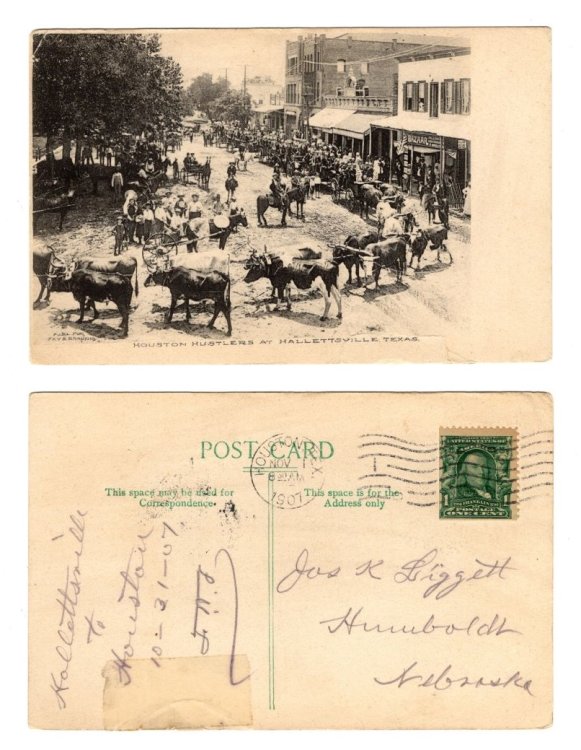 BAZAAR
PUBL. FOR
HOUSTON HUSTLERS AT HALLETTSVILLE TEXAS.
POST CARD
This space may be used for
Correspondence.
This space is for the
Address only
HOUSTON
NOV 1
1907
TEX
UNITED STATES OF
FRANKLIN
POSTAGE
ONE CENT
Hallettsville
to
Houston
10-31-07
Jas K Liggett
Humboldt
Nebraska